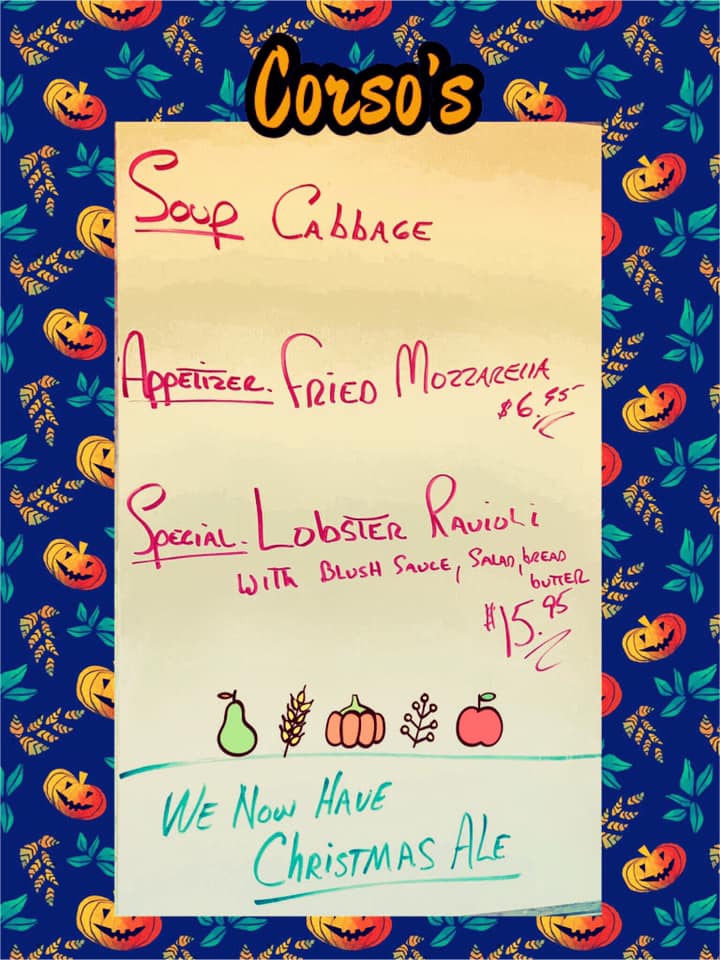 Corso's
Soup Cabbage
Appetizer. Fried Mozzarella
$6.95
Special. Lobster Ravioli
with Blush Sauce, Salad, bread
butter
$15.95
We Now Have
Christmas Ale